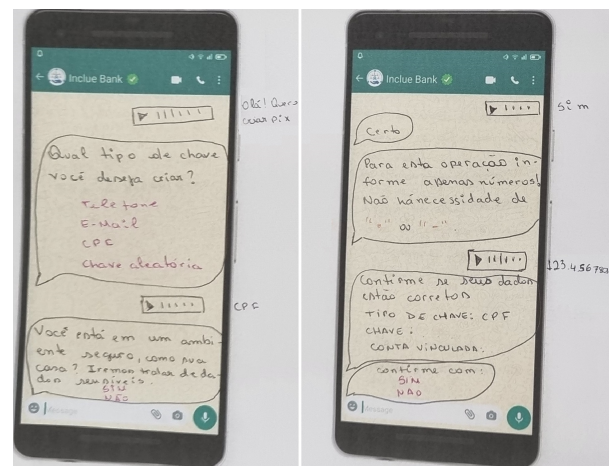 Inclue Bank
Olá! Quero
criar pix
Qual tipo de chave
você deseja criar?
Telefone
E-Mail
CPF
Chave aleatória
CPF
Você está em um ambi-
ente seguro, como sua
casa? Iremos tratar de da-
dos sensíveis.
SIM
NÃO
Message
Inclue Bank
Sim
Certo
Para esta operação in-
forme apenas números!
Não há necessidade de
"." ou "-".
123.456.783
Confirme se seus dados
estão corretos
TIPO DE CHAVE: CPF
CHAVE:
CONTA VINCULADA:
Confirme com:
SIM
NAO
Message